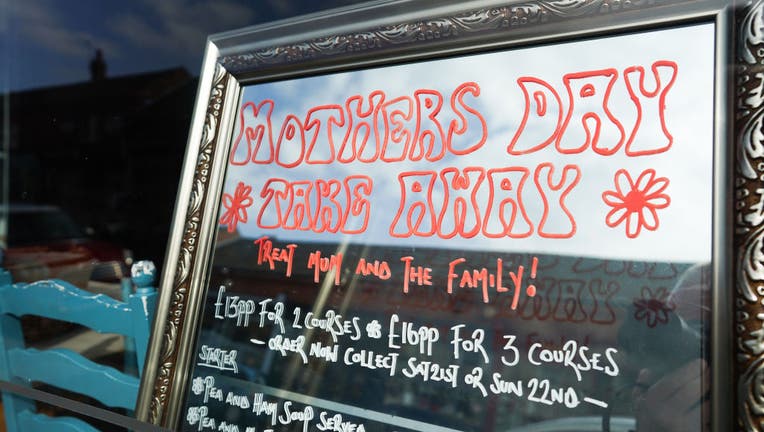 MOTHERS DAY
TAKE AWAY
TREAT MUM AND THE FAMILY!
£13PP FOR 2 COURSES & £16PP FOR 3 COURSES
- ORDER NOW COLLECT SAT 21ST OR SUN 22ND -
STARTER
PEA AND HAM SOUP SERVED
PEA AND